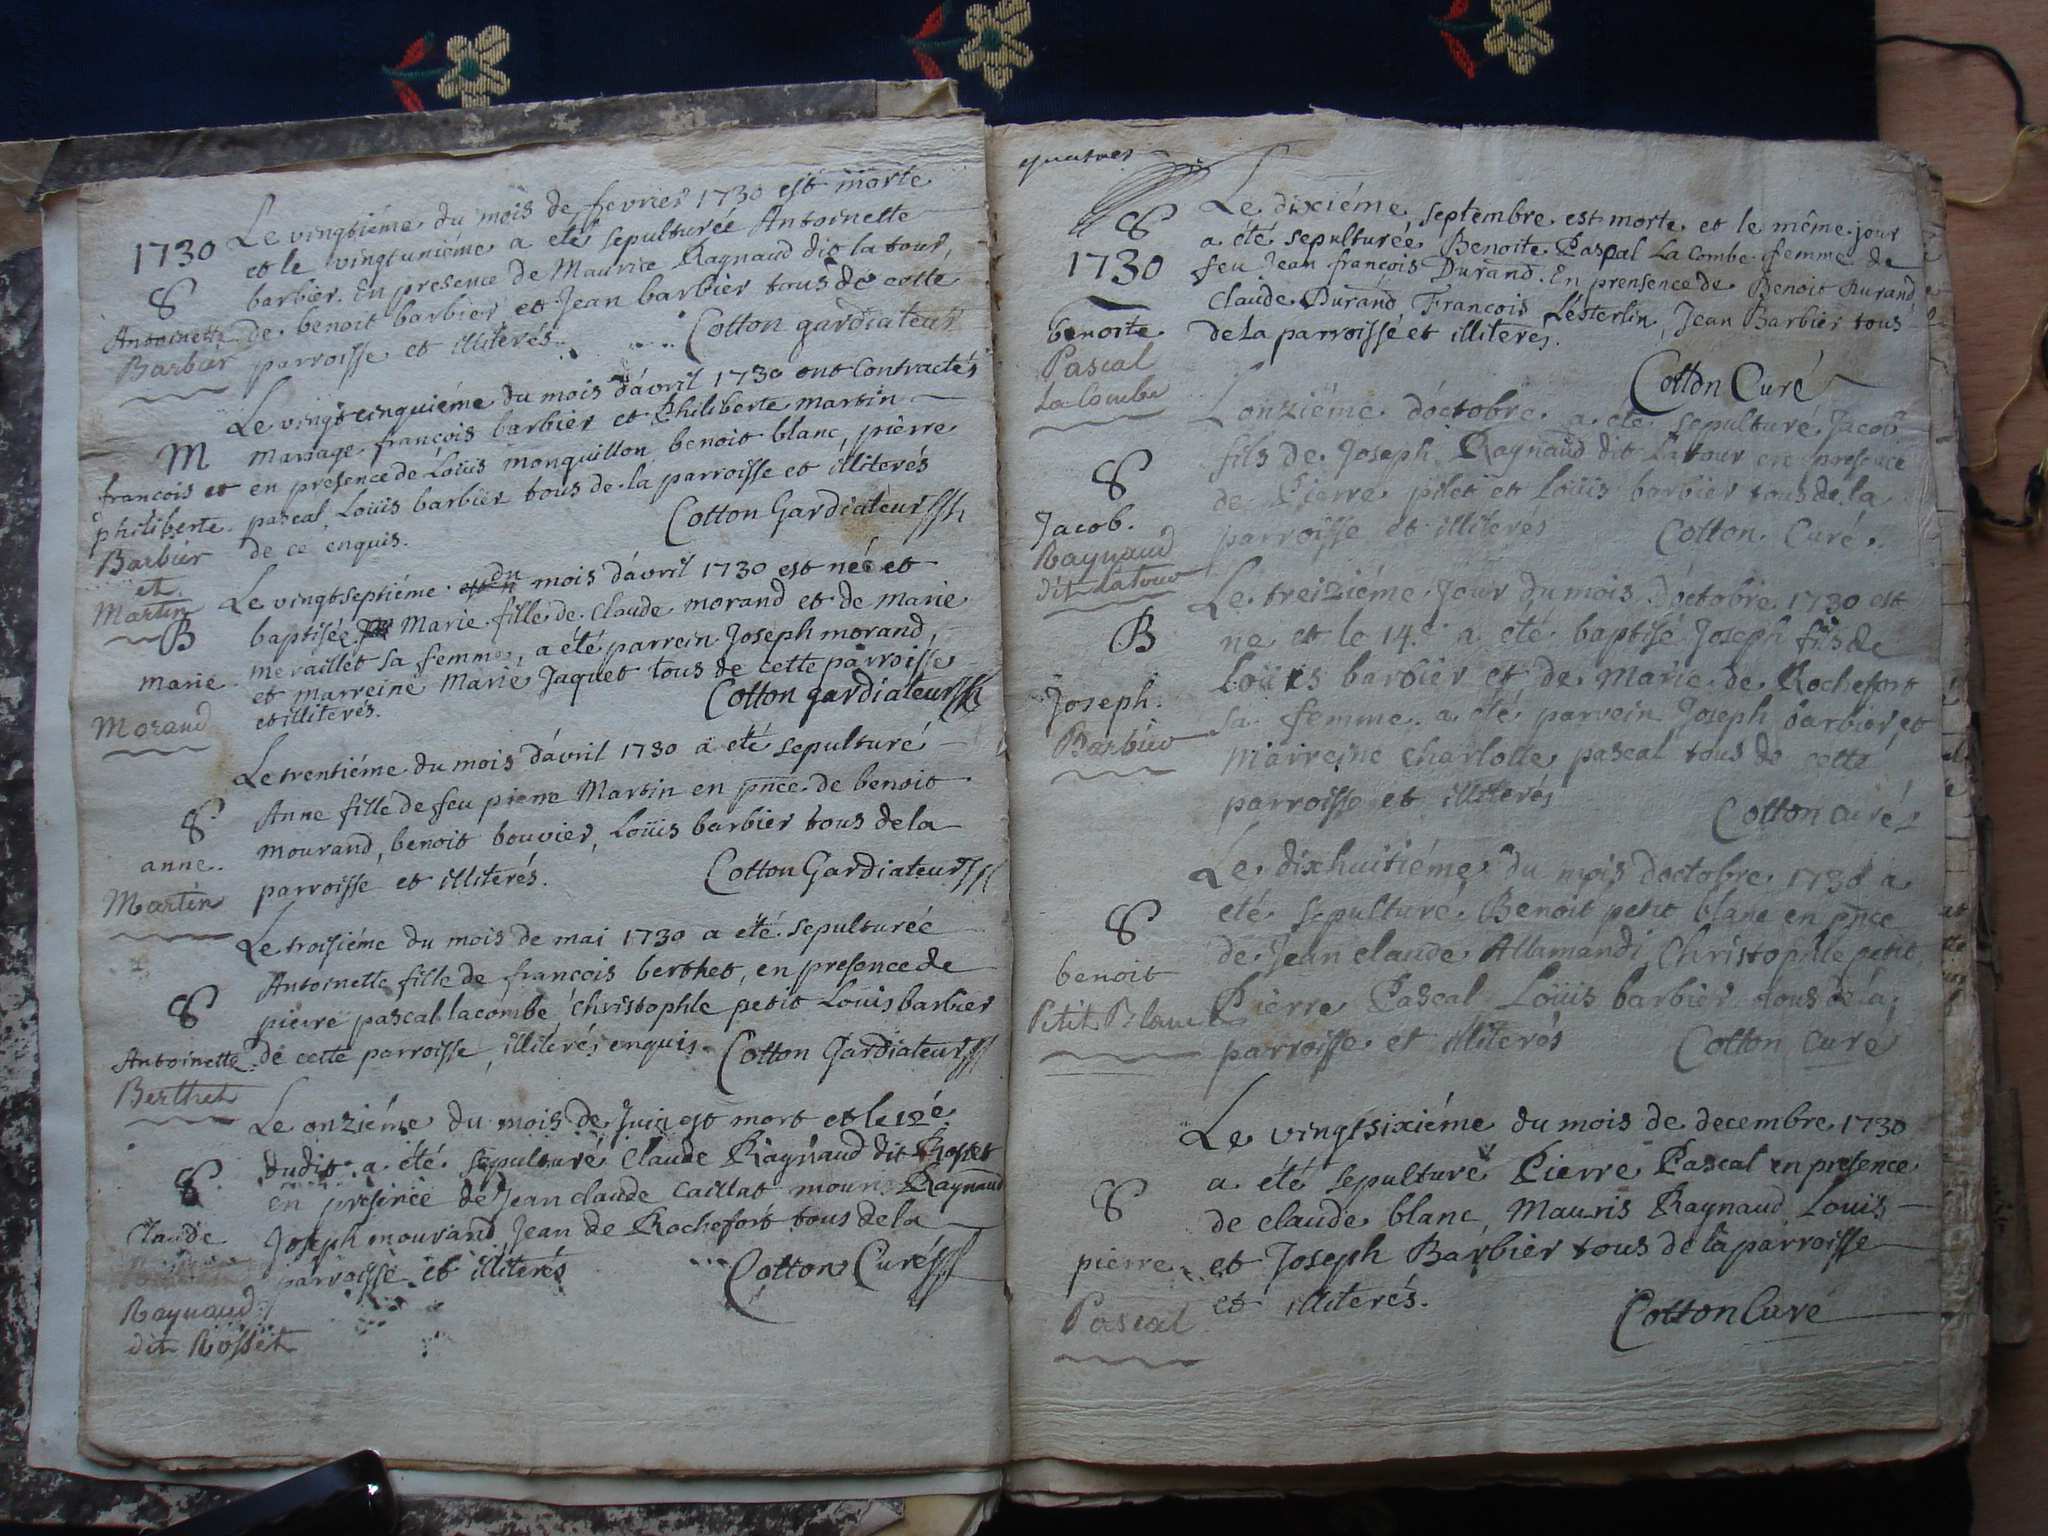 1730
S
Antoinette
Barbier
Le vingtiéme du mois de fevrier 1730 est morte
et le vingtuniéme a eté sepulturée Antoinette
barbier. En presence de Maurice Raynaud dit latour,
de benoit barbier et Jean barbier tous de cette
parroisse et illiterés.
Cotton gardiateur
M
francois et
philiberte
Barbier
et
Martin
Le vingtcinquiéme du mois d'avril 1730 ont Contractés
mariage françois barbier et Philiberte martin
en presence de Loüis monquillon benoit blanc, pierre
pascal, Loüis barbier tous de la parroisse et illiterés
de ce enquis.
Cotton Gardiateur
B
marie
Morand
Le vingtseptiéme du mois d'avril 1730 est née et
baptisée Marie fille de Claude morand et de marie
meraillet sa femme, a été parrein Joseph morand,
et marreine Marie Jaquet tous de cette parroisse
et illiterés.
Cotton gardiateur
S
anne
Martin
Le trentiéme du mois d'avril 1730 a eté sepulturé
Anne fille de feu pierre Martin en pnce de benoit
mourand, benoit bouvier, Loüis barbier tous de la
parroisse et illiterés.
Cotton Gardiateur
S
Antoinette
Berthet
Le troisiéme du mois de mai 1730 a été sepulturée
Antoinette fille de françois berthet, en presence de
pierre pascal lacombe Christophle petit Louis barbier
de cette parroisse, illiterés enquis.
Cotton Gardiateur
S
Claude
Raynaud
dit Rosset
Le onziéme du mois de Juin est mort et le 12é
dudit a été sepulturé Claude Raynaud dit Rosset
en presence de Jean claude Caillat mouris Raynaud
Joseph mourand Jean de Rochefort tous de la
parroisse et illiterés
Cotton Curé
quatres
S
1730
benoite
Pascal
La Combe
Le dixiéme septembre est morte et le même jour
a été sepulturée Benoite Paspal La Combe femme de
feu Jean françois Durand. En prensence de Benoit Durand
Claude Durand François Lesterlin, Jean Barbier tous
de la parroisse et illiterés.
Cotton Curé
S
Jacob.
Raynaud
dit Latour
L'onziéme d'octobre a eté sepulturé Jacob
fils de Joseph Raynaud dit Latour en presence
de Pierre pilet et Loüis barbier tous de la
parroisse et illiterés
Cotton Curé.
B
Joseph.
Barbier
Le treiziéme Jour du mois d'octobre 1730 est
ne et le 14e a eté baptisé Joseph fils de
Loüis barbier et de Marie de Rochefort
sa femme a eté parrein Joseph barbier, et
marreine Charlotte pascal tous de cette
parroisse et illiterés
Cotton Curé
S
benoit
Petit Blanc
Le dixhuitiéme du mois d'octobre 1730 a
eté sepulturé Benoit petit blanc en pnce
de Jean claude Allamandi Christophle petit
Pierre Pascal Loüis barbier tous de la
parroisse et illiterés
Cotton Curé
S
pierre
Pascal
Le vingtsixiéme du mois de decembre 1730
a été sepulturé Pierre Pascal en presence
de claude blanc, Mauris Raynaud Louis
et Joseph Barbier tous de la parroisse
et illiterés.
Cotton Curé